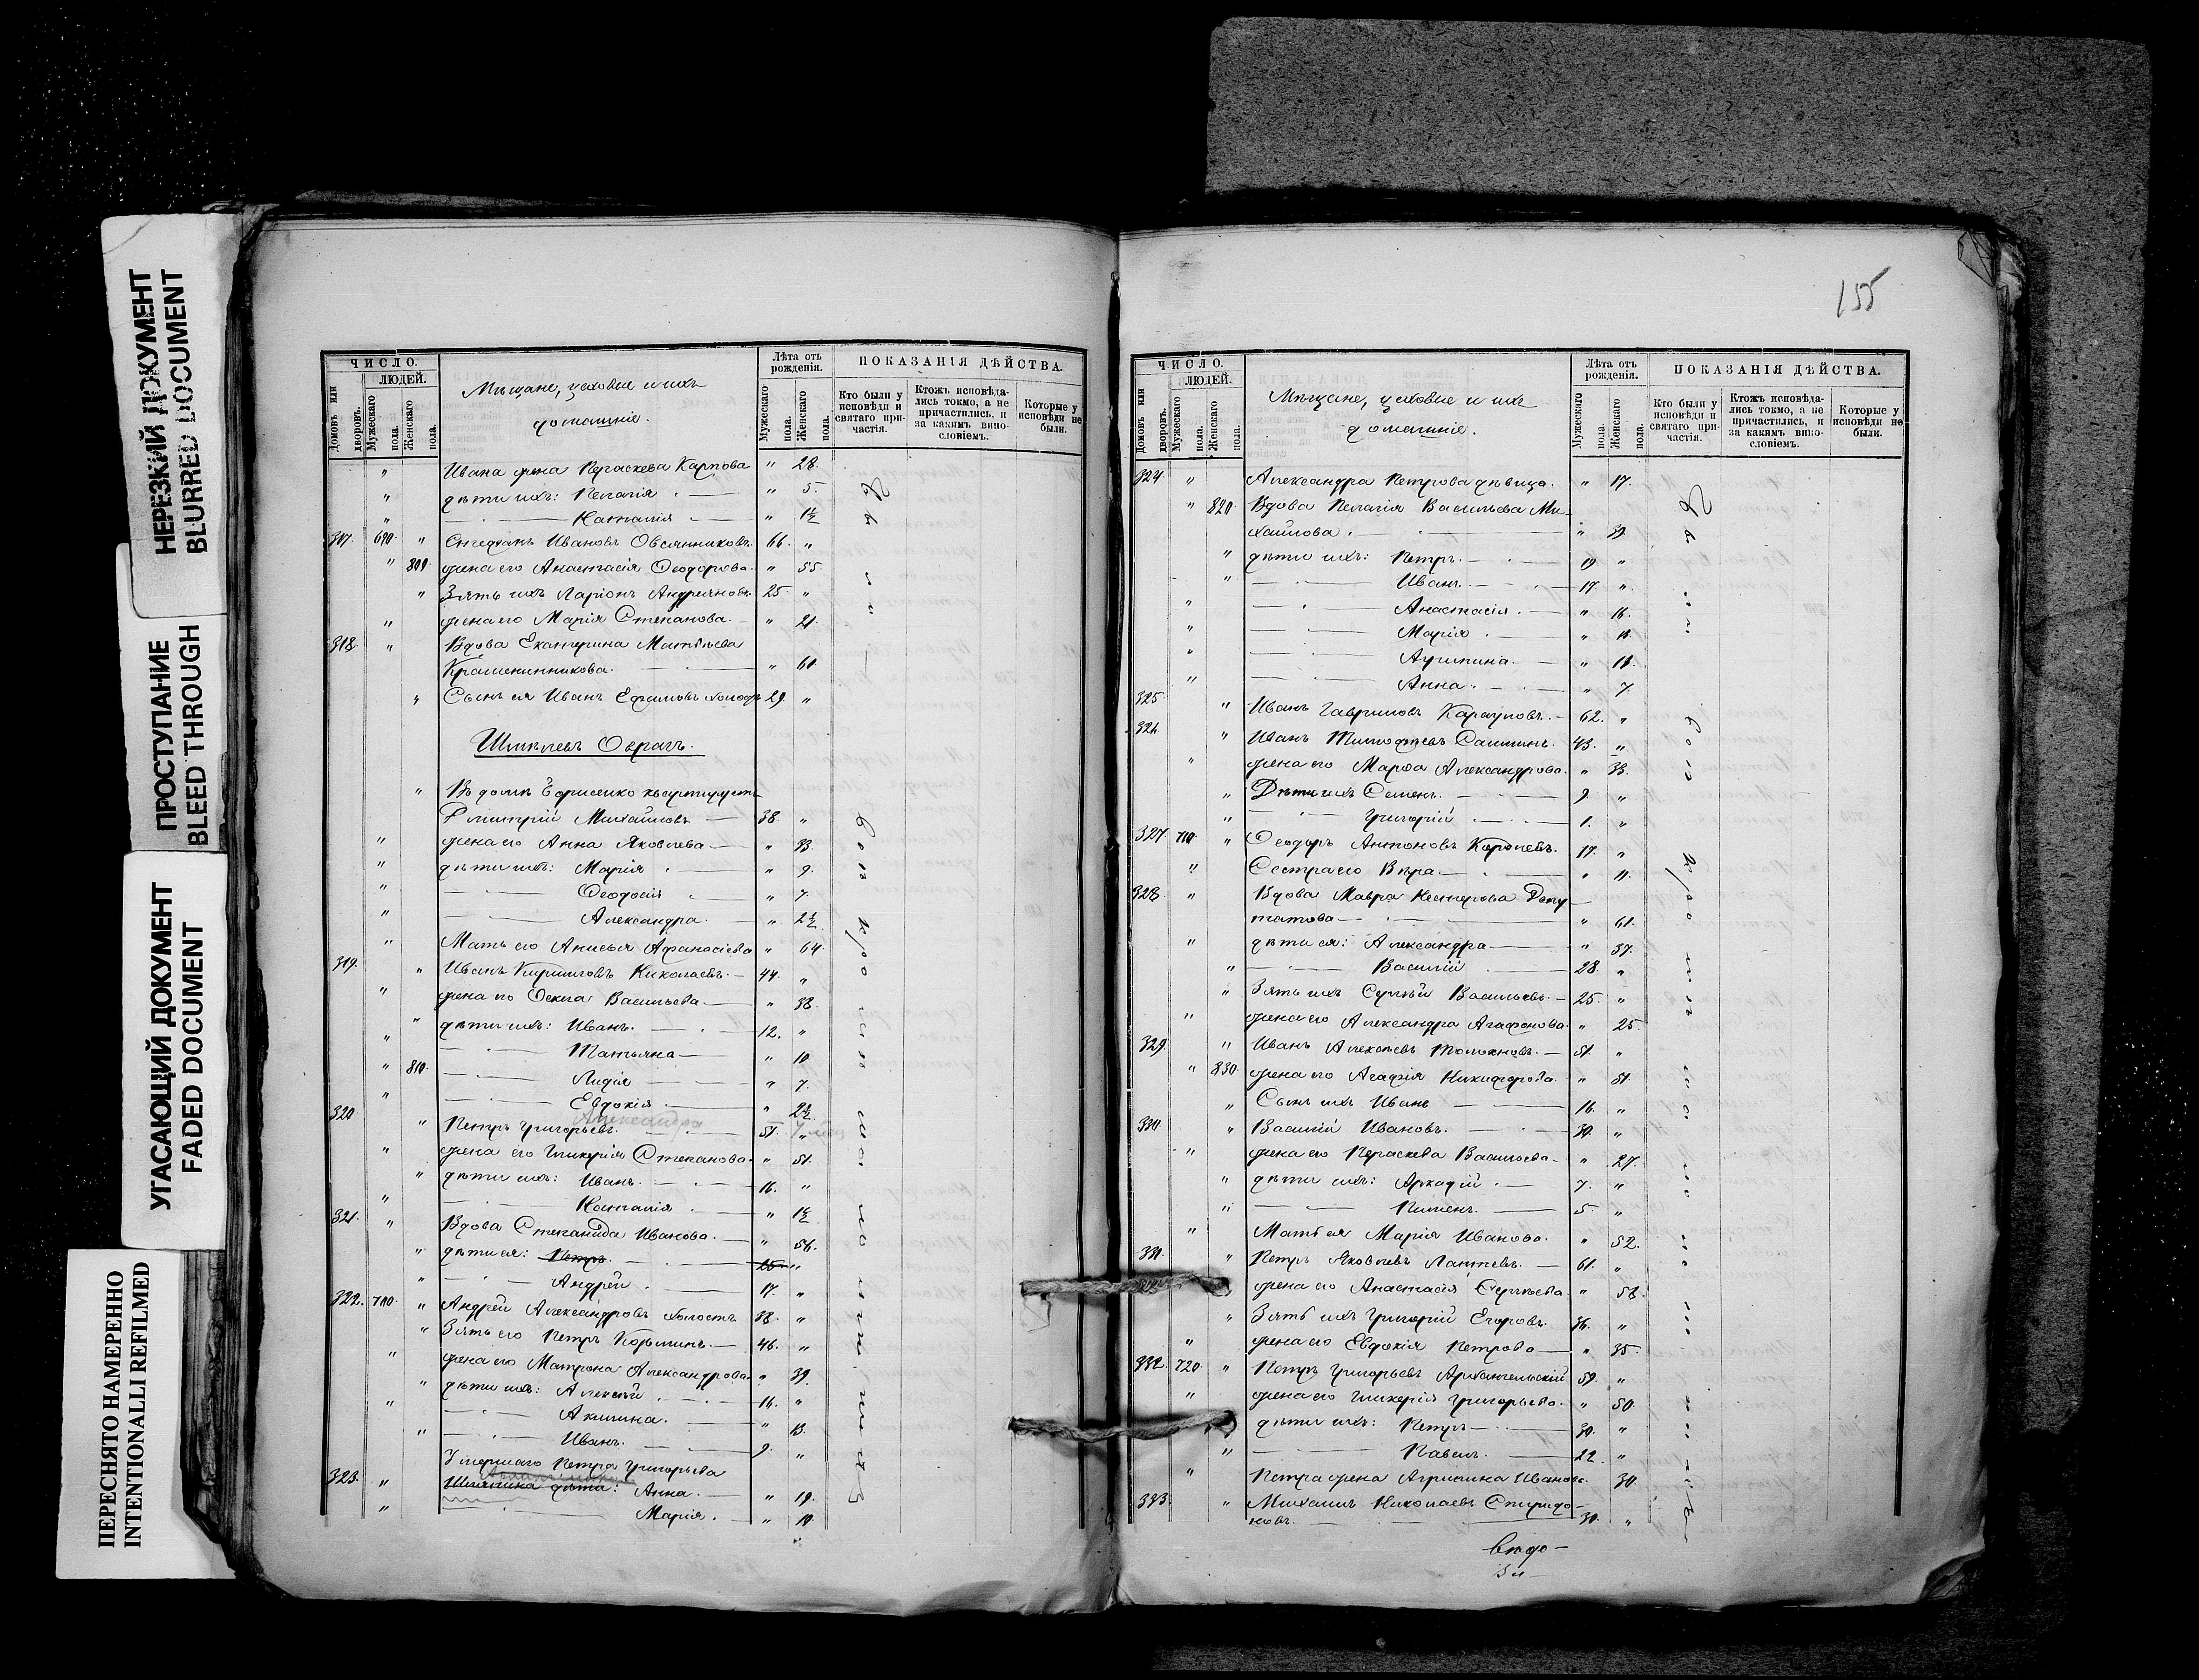 НЕРЕЗКИЙ ДОКУМЕНТ
BLURRED DOCUMENT
ПРОСТУПАНИЕ
BLEED THROUGH
УГАСАЮЩИЙ ДОКУМЕНТ
FADED DOCUMENT
ПЕРЕСНЯТО НАМЕРЕННО
INTENTIONALLI REFILMED
ЧИСЛО.
ЛЮДЕЙ.
Домовъ или дворовъ.
Мужескаго пола.
Женскаго пола.
Мѣщане, цеховые и ихъ
домашніе.
Лѣта отъ рожденія.
Мужескаго пола.
Женскаго пола.
ПОКАЗАНІЯ ДѢЙСТВА.
Кто были у исповѣди и святаго причастія.
Ктожъ исповѣдались токмо, а не причастились, и за какимъ винословіемъ.
Которые у исповѣди не были.
" Ивана жена Параскева Карпова " 28.
" дѣти ихъ: Пелагія " 5.
" Наталія " 1½
317. 690. " Стефанъ Ивановъ Овсянниковъ. 66. "
" 809. жена его Анастасія Ѳеодорова. " 55
" Зять ихъ Ларіонъ Андреяновъ 25. "
" жена его Марія Степанова. " 21
318. " Вдова Екатерина Матвѣева
Крашенинникова. " 60.
" Сынъ ея Иванъ Ефимовъ холостъ 29. "
Оврагъ.
" Въ домѣ квартируетъ
Димитрій Михайловъ 38. "
" жена его Анна Яковлева " 33.
" дѣти ихъ: Марія " 9.
" Ѳеодосія " 7.
" Александра " 2½
" Мать его Анисья Афанасіева " 64.
319. " Иванъ Кирилловъ Николаевъ. 44. "
" жена его Ѳекла Васильева " 38.
" дѣти ихъ: Иванъ. 12. "
" Татьяна " 10
" 810. Лидія " 7.
" Евдокія " 2½
Александра
320 " Петръ Григорьевъ. 51. "
" жена его Гликерія Степанова. " 51.
" дѣти ихъ: Иванъ. 16. "
" Наталія " 1½
321. " Вдова Степанида Иванова. " 56.
" дѣти ея: Петръ. 25 "
" Андрей 17. "
322. 700. " Андрей Александровъ холостъ 38. "
" Зять его Петръ 46. "
" жена его Матрона Александрова " 39.
" дѣти ихъ: Алексѣй 16. "
" Акилина. " 13.
" Иванъ. 9. "
Умершаго Петра Григорьева
323. " дѣти: Анна. " 19.
" Марія. " 10.
155
ЧИСЛО.
ЛЮДЕЙ.
Домовъ или дворовъ.
Мужескаго пола.
Женскаго пола.
Мѣщане, цеховые и ихъ
домашніе.
Лѣта отъ рожденія.
Мужескаго пола.
Женскаго пола.
ПОКАЗАНІЯ ДѢЙСТВА.
Кто были у исповѣди и святаго причастія.
Ктожъ исповѣдались токмо, а не причастились, и за какимъ винословіемъ.
Которые у исповѣди не были.
324. " Александра Петрова дѣвица. " 17.
" 820. Вдова Пелагія Васильева Ми-
хайлова. " 39.
" дѣти ихъ: Петръ. 19. "
" Иванъ. 17. "
" Анастасія. " 16.
" Марія " 13.
" Агрипина. "
" Анна. " 7.
325. " Иванъ Гавриловъ Карауловъ. 62. "
326. " Иванъ Тимофеевъ 43. "
" жена его Марѳа Александрова. " 33.
" Дѣти ихъ Семенъ. 9. "
" Григорій 1. "
327. 710. " Ѳеодоръ Антоновъ Королевъ. 17. "
" Сестра его Вѣра. " 11.
328. " Вдова Мавра Нестерова Депу-
татова " 61.
" дѣти ея: Александра " 37.
" Василій 28. "
" Зять ихъ Сергѣй Васильевъ. 25. "
" жена его Александра Агафонова. " 25.
329. " Иванъ Алексѣевъ Толокновъ. 51. "
" 830. жена его Агафія Никифорова. " 51.
" Сынъ ихъ Иванъ 16. "
330 " Василій Ивановъ. 30. "
" жена его Параскева Васильева " 27.
" дѣти ихъ: Аркадій 7. "
" Пименъ. 5. "
" Мать ея Марія Иванова. " 52.
331. " Петръ Яковлевъ Лаптевъ. 61. "
жена его Анастасія Сергѣева. " 58.
" Зять ихъ Григорій Егоровъ. 36. "
" жена его Евдокія Петрова " 35.
332. 720. " Петръ Григорьевъ Архангельскій 59. "
" жена его Гликерія Григорьева. " 50.
дѣти ихъ: Петръ 30. "
" Павелъ. 22. "
" Петра жена Агрипина Иванова. 30.
333. " Михаилъ Николаевъ Спиридо-
новъ. 30. "